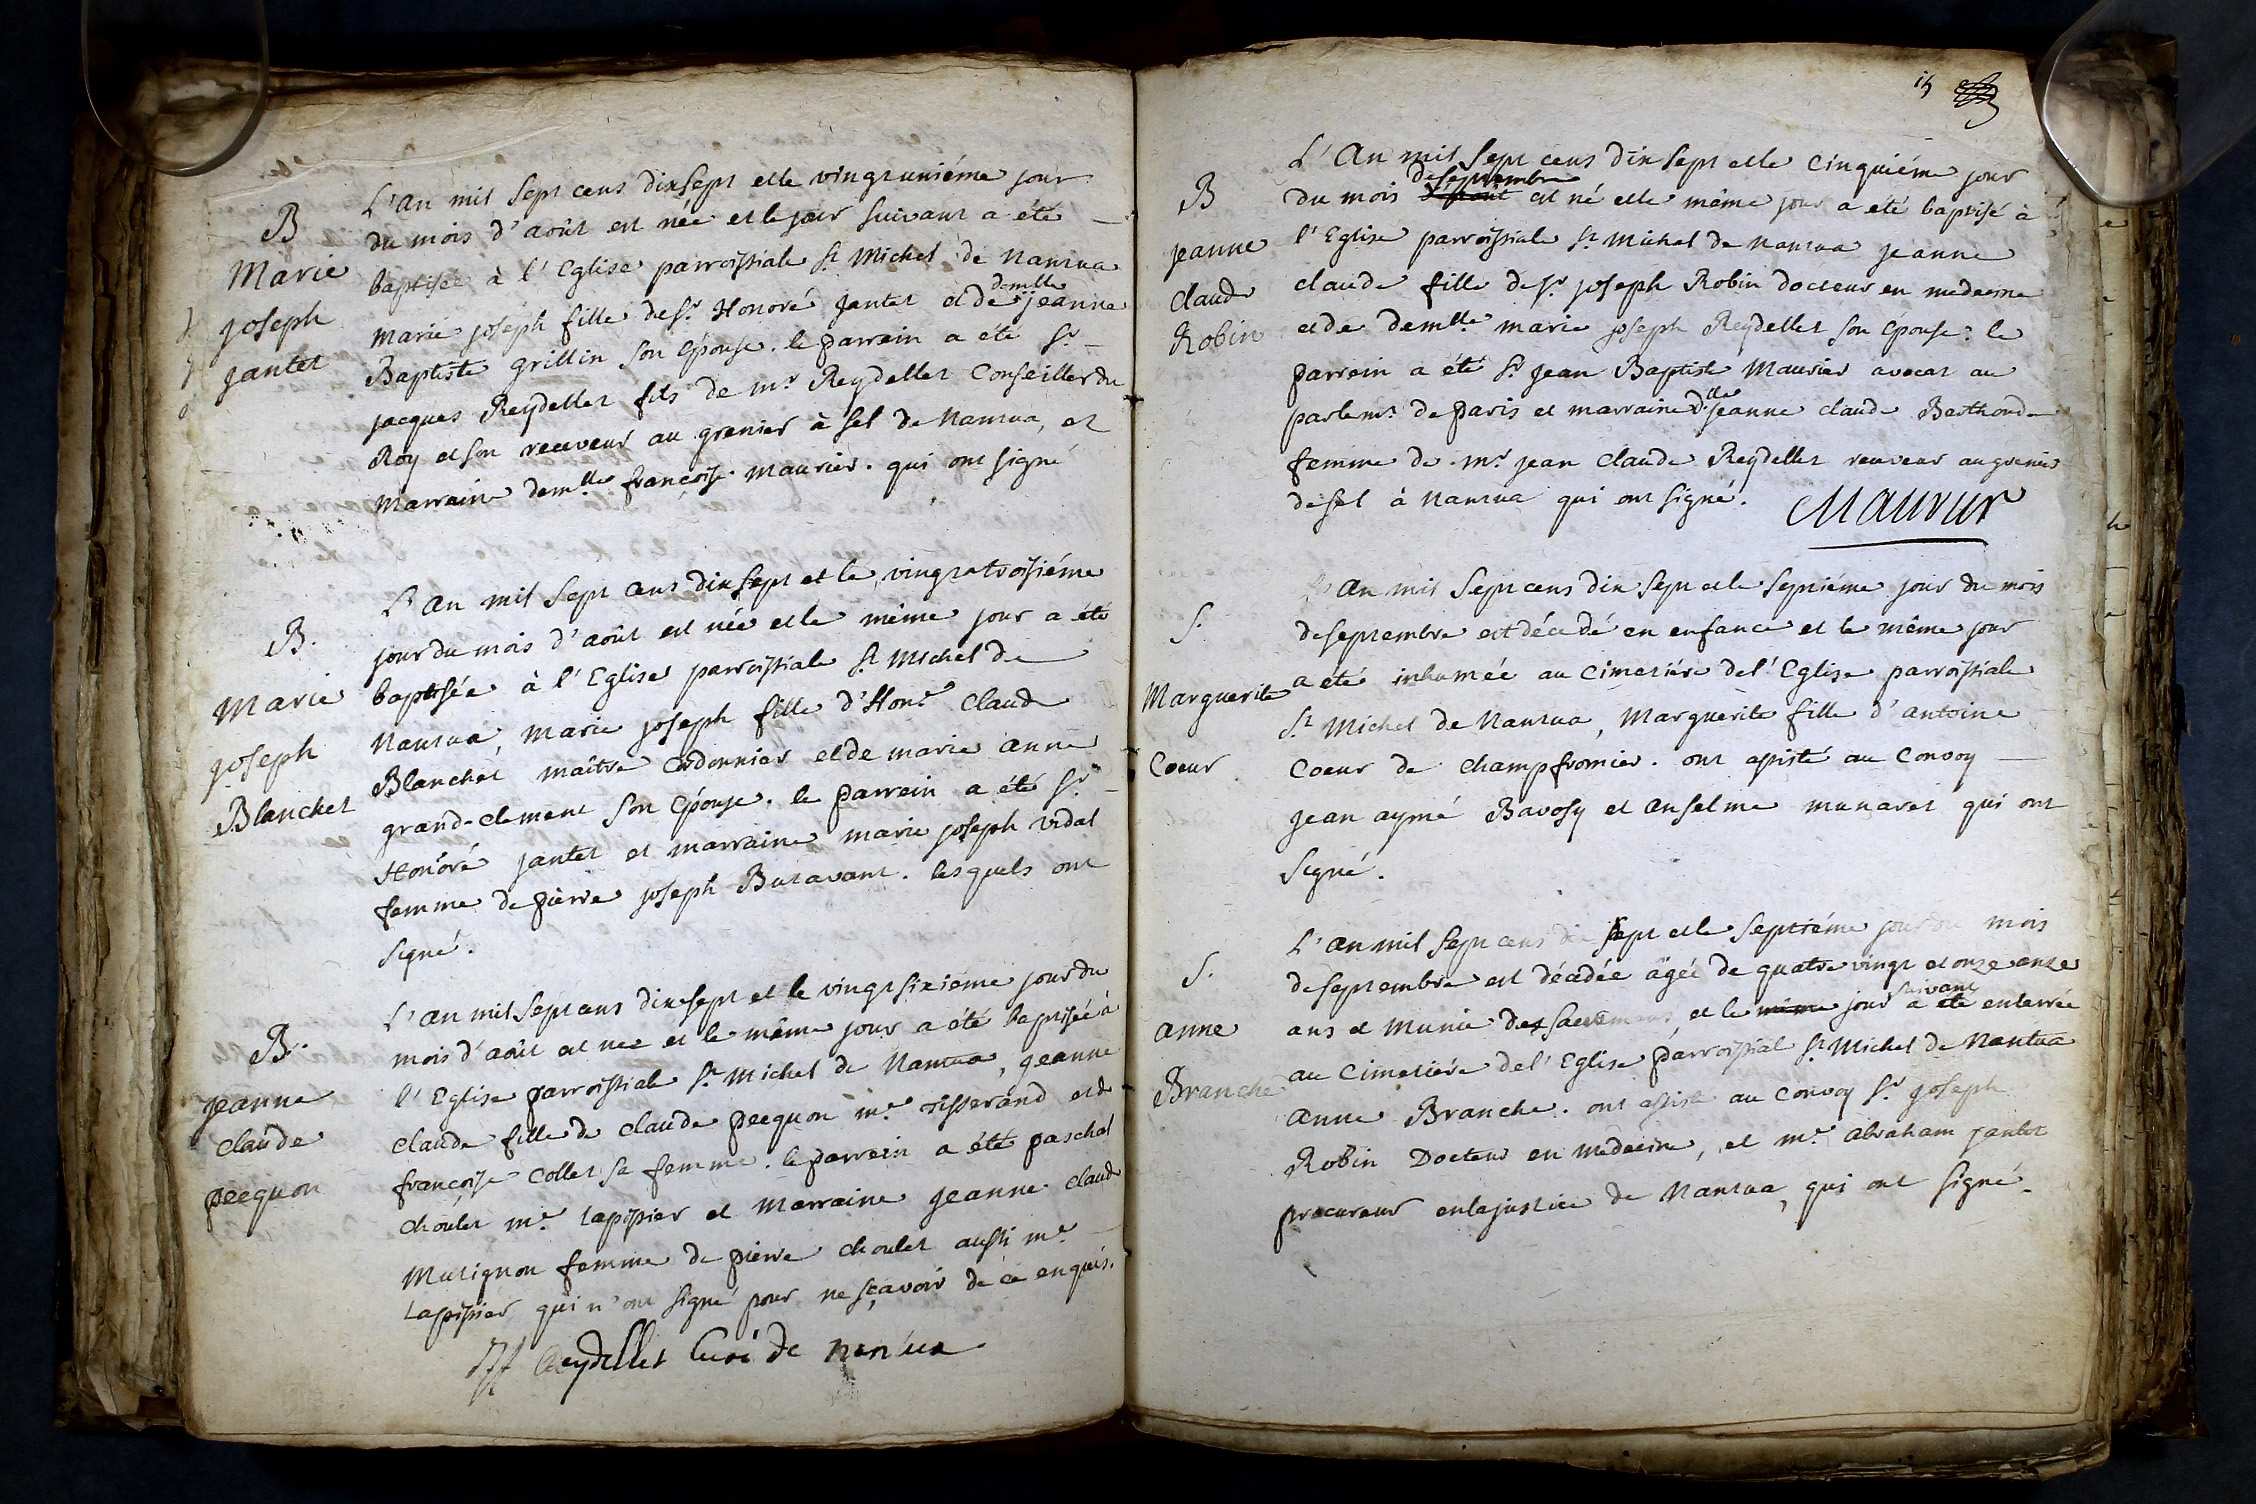 B
Marie
joseph
jantet
L'an mil sept cens dixsept et le vingtuniéme jour
du mois d'août est née et le jour suivant a été
baptisée à l'Eglise parroissiale St Michel de Nantua
marie joseph fille de Sr Honoré jantet et de demlle jeanne
Baptiste grillin son épouse. le parrein a eté Sr
jacques Reydellet fils de mr Reydellet Conseiller du
Roy et son receveur au grenier à sel de Nantua, et
marraine demlle françoise maurier. qui ont signé
B.
Marie
joseph
Blanchet
L'an mil sept cens dixsept et le vingtatroisiéme
jour du mois d'août est née et le même jour a été
baptisée à l'Eglise parroissiale St Michel de
Nantua, marie joseph fille d'Hon.e Claude
Blanchet maître cordonnier et de marie anne
grand-clement son épouse. le parrein a été Sr
Honoré jantet et marraine marie joseph vidal
femme de pierre joseph Butavant. lesquels ont
signé.
B.
jeanne
claude
pecquon
L'an mil sept cens dixsept et le vingtsixiéme jour du
mois d'août est nee et le même jour a été baptisée à
l'Eglise parroissiale St Michel de Nantua, jeanne
claude fille de claude pecquon me tisserand et de
françoise collet sa femme. le parrein a été paschal
choulet me tapissier et marraine jeanne claude
Mutignon femme de pierre choulet aussi me
tapissier qui n'ont signé pour ne sçavoir de ce enquis.
Reydellet Curé de nantua
15
B
jeanne
claude
Robin
L'an mil sept cens dix sept et le cinquiéme jour
de septembre
du mois est né et le même jour a eté baptisé à
l'Eglise parroissiale St Michel de nantua jeanne
claude fille de Sr joseph Robin docteur en medecine
et de demlle marie joseph Reydellet son épouse: le
parrein a été Sr jean Baptiste Maurier avocat au
parlemt de paris et marraine dlle jeanne claude Berthoud
femme de mr jean claude Reydellet receveur au grenier
de sel à nantua qui ont signé. Maurier
S.
Marguerite
Coeur
L'an mil sept cens dix sept et le septiéme jour du mois
de septembre est décedé en enfance et le même jour
a eté inhumée au cimetiére de l'Eglise parroissiale
St Michel de Nantua, Marguerite fille d'antoine
Coeur de champfromier. ont assisté au convoy
jean aymé Bavosy et anselme munaret qui ont
signé.
S.
anne
Branche
L'an mil sept cens dix sept et le septiéme jour du mois
de septembre est décedée âgée de quatre vingt et onze anze
ans et munie des sacremens, et le même jour suivant a eté enterrée
au cimetiére de l'Eglise parroissial St Michel de Nantua
anne Branche. ont assisté au convoy Sr joseph
Robin Docteur en medecine, et me abraham jantet
procureur en la justice de Nantua, qui ont signé.